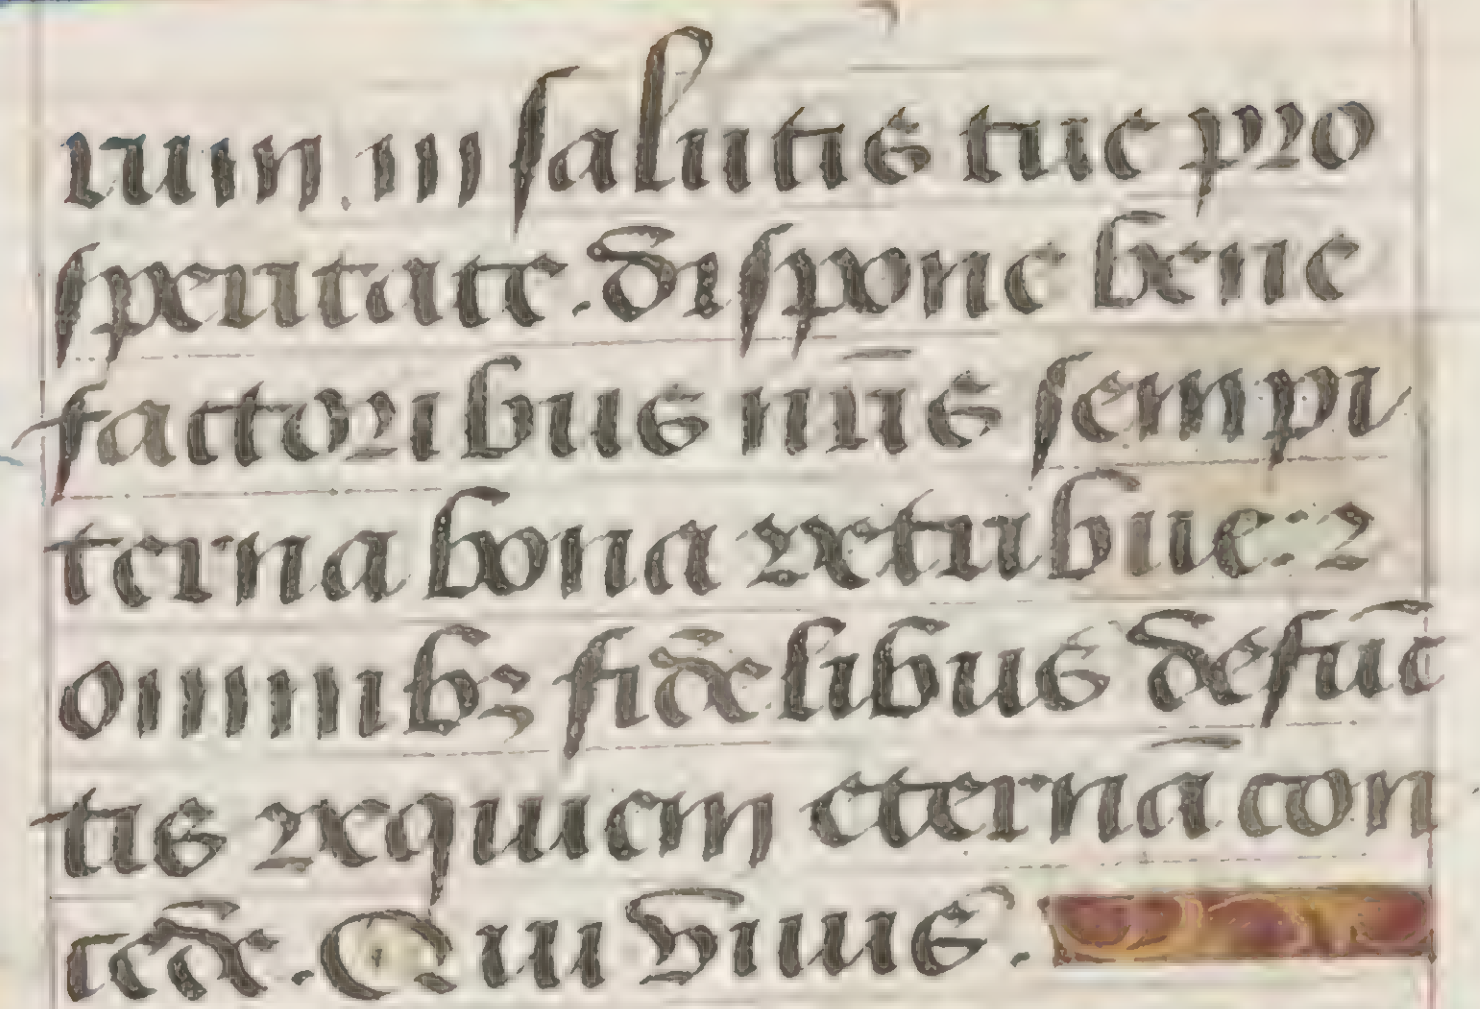 rum in salutis tue pro
speritate. dispone bene
factoribus nr̄is sempi
terna bona retribue: ⁊
omnibꝫ fidelibus defūc
tis requiem eternā con
cede. Qui viuis.